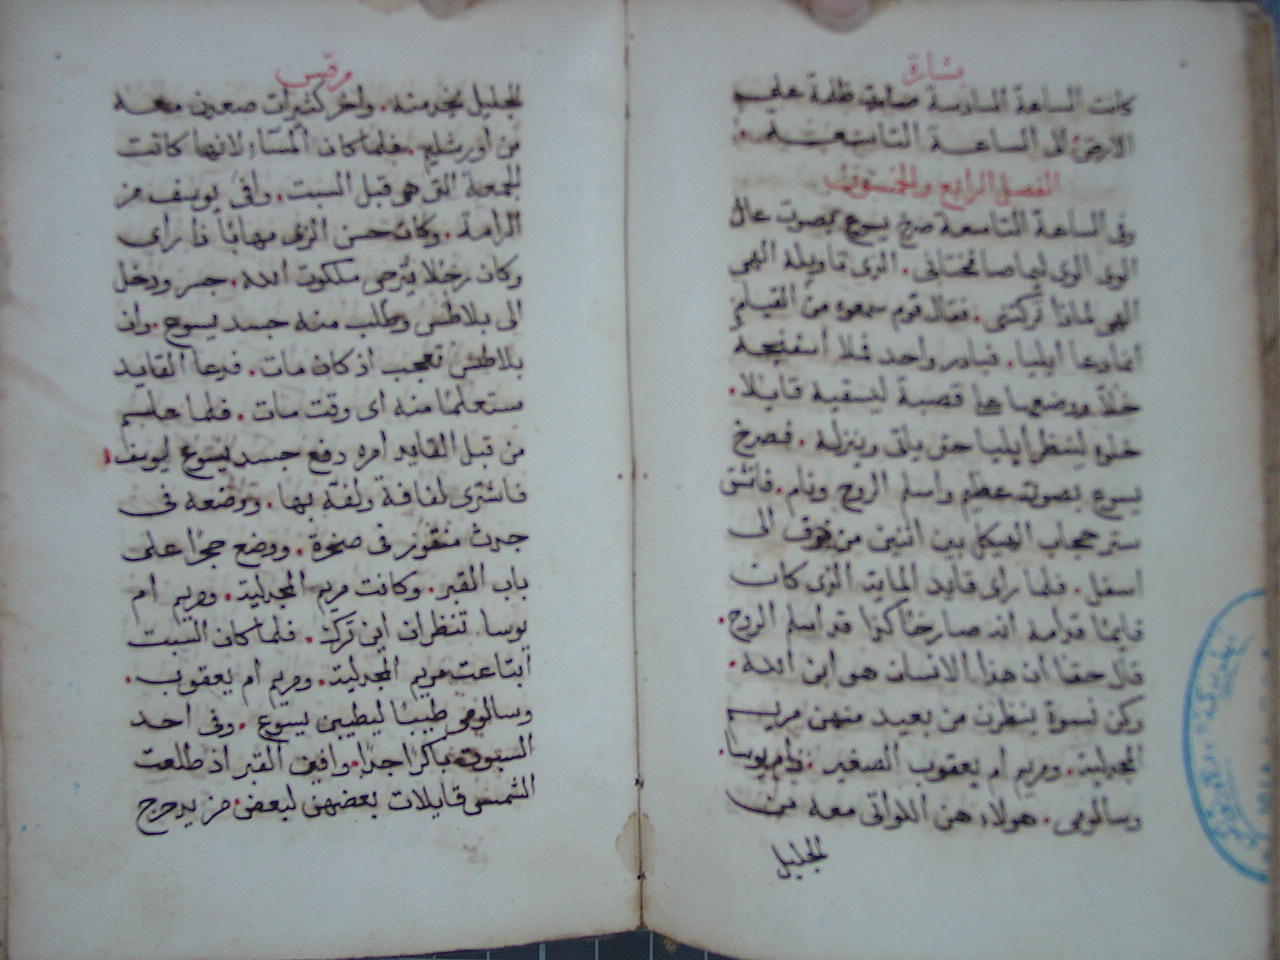 بشارة
كانت الساعة السادسة صارت ظلمة على
الارض الى الساعة التاسعة.
الفصل الرابع والخمسون
وفى الساعة التاسعة صرخ يسوع بصوت عال
الوى الوى ليماصافختانى. الذى تاويله الهى
الهى لماذا تركتنى. فقال قوم سمعوه من القيام
انما دعا ايليا. فبادر واحد فملا اسفنجة
خلاً ووضعها على قصبة ليسقيه قايلا.
خلوه لننظر ايليا حتى ياتى وينزله. فصرخ
يسوع بصوت عظيم واسلم الروح ونام. فانشق
ستر حجاب الهيكل بين اثنين من فوق الى
اسفل. فلما راى قايد الماية الذى كان
قايمًا قدامه انه صارخاً كذا قد اسلم الروح.
قال حقا ان هذا الانسان هو ابن الله.
وكن نسوة ينظرن من بعيد منهن مريم
المجدلية. ومريم ام يعقوب الصغير. وام يوسا.
وسالومى. هولاء هن اللواتى معه من
الجليل
مرقس
الجليل يخدمنه. واخر كثيرات صعدن معه
من أورشليم. فلما كان المساء لانها كانت
الجمعة التى هى قبل السبت. وافى يوسف من
الرامة. وكان حسن الزى مهابًا ذا راى
وكان رجلا يترجى ملكوت الله. جسر ودخل
الى بلاطس وطلب منه جسد يسوع. وان
بلاطس تعجب اذ كان مات. فدعا القايد
مستعلمًا منه اى وقت مات. فلما علم
من قبل القايد امره دفع جسد يسوع ليوسف
فاشترى لفافة ولفه بها. ووضعه فى
جدث منقور فى صخرة. ووضع حجرًا على
باب القبر. وكانت مريم المجدلية. ومريم ام
يوسا. تنظران اين ترك. فلما كان السبت
ابتاعت مريم المجدلية. ومريم ام يعقوب.
وسالومى طيبًا ليطيبن يسوع. وفى احد
السبوت باكرًا جدًا. وافين القبر اذ طلعت
الشمس قايلات بعضهن لبعض من يدحرج